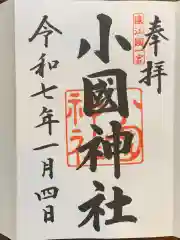 奉拝
遠江國一宮
小國神社
令和七年一月四日